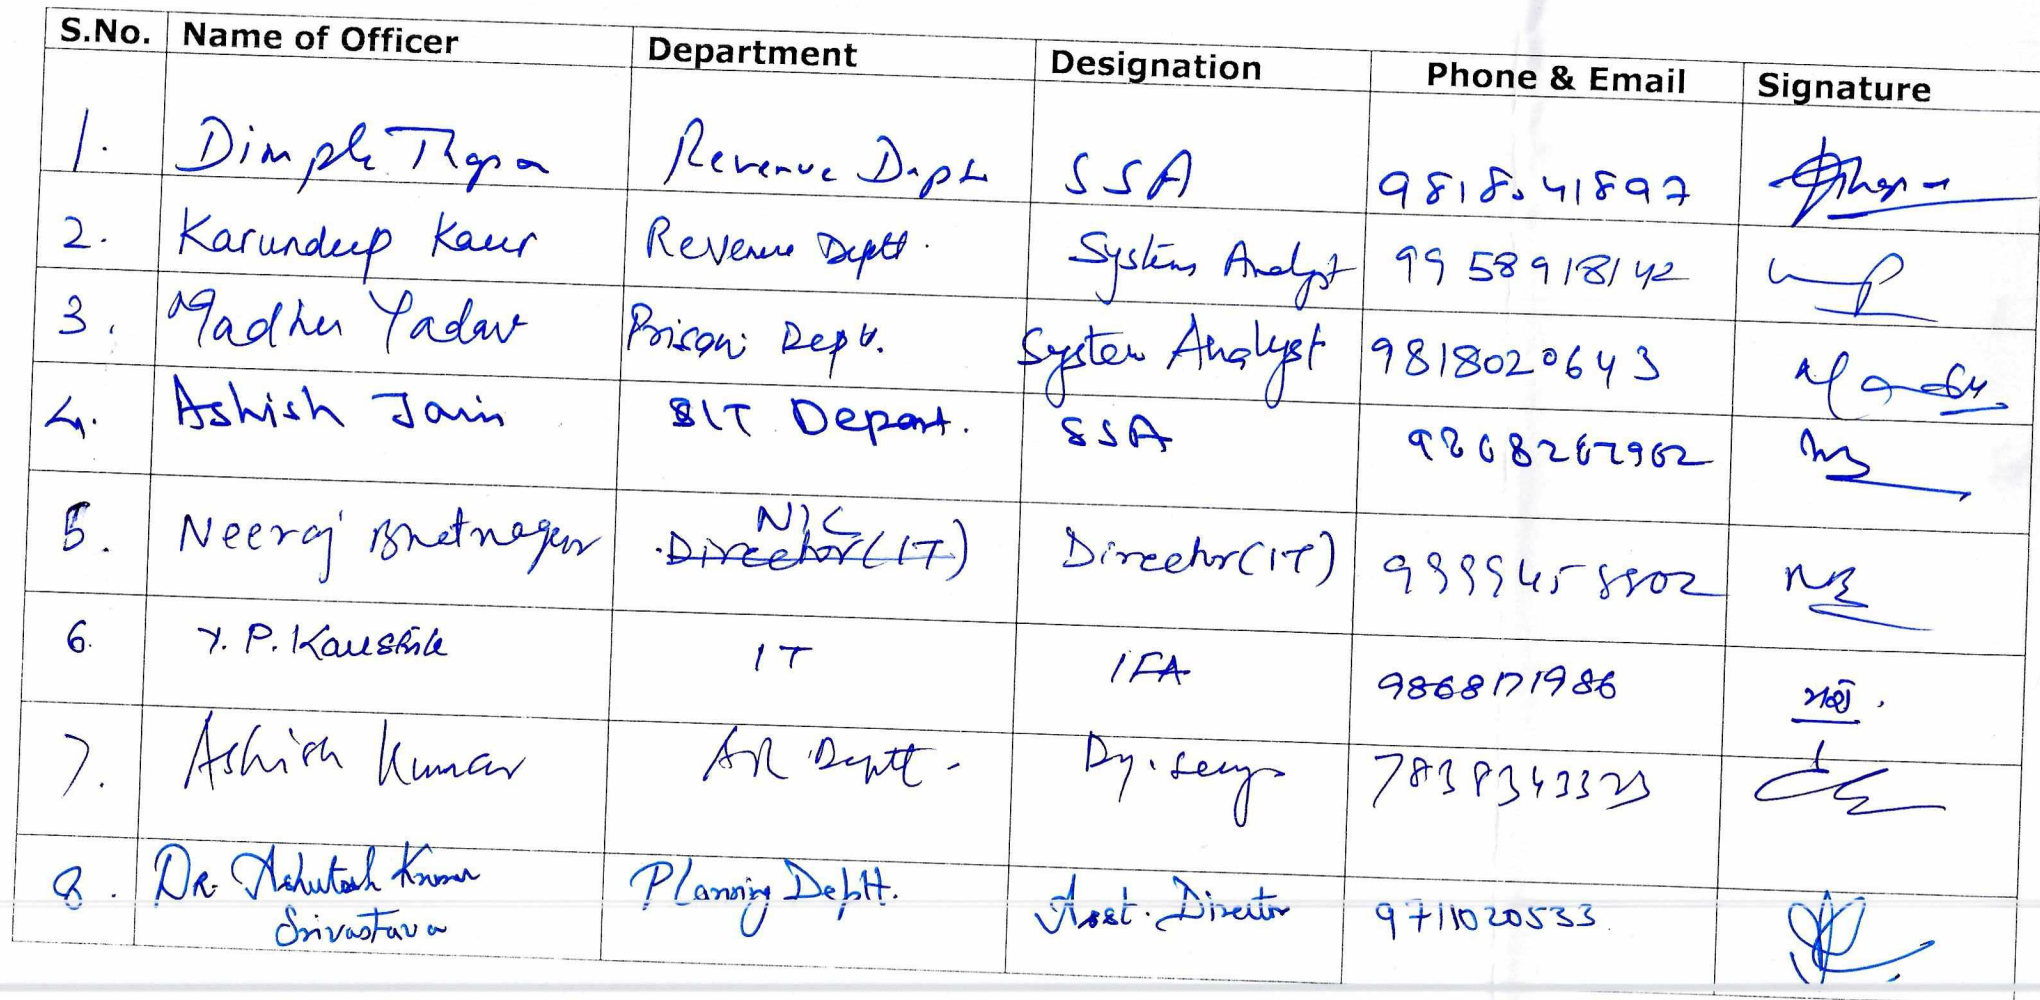 S.No. Name of Officer Department Designation Phone & Email Signature
1. Dimple Thapa Revenue Deptt SSA 9818041897
2. Karundeep Kaur Revenue Deptt. System Analyst 9958918142
3. Madhu Yadav Prison Dept. System Analyst 9818020643
4. Ashish Jain Depart. SSA 9868267962
5. Neeraj Bhatnagar NIC Director(IT) Director(IT)
6. Y. P. Kaushik IT IFA 9868171986
7. Ashish Kumar AR Deptt. Dy. Secy 7838343323
8. Dr. Ashutosh Kumar Planning Deptt. Asst. Director 9711020533
Srivastava